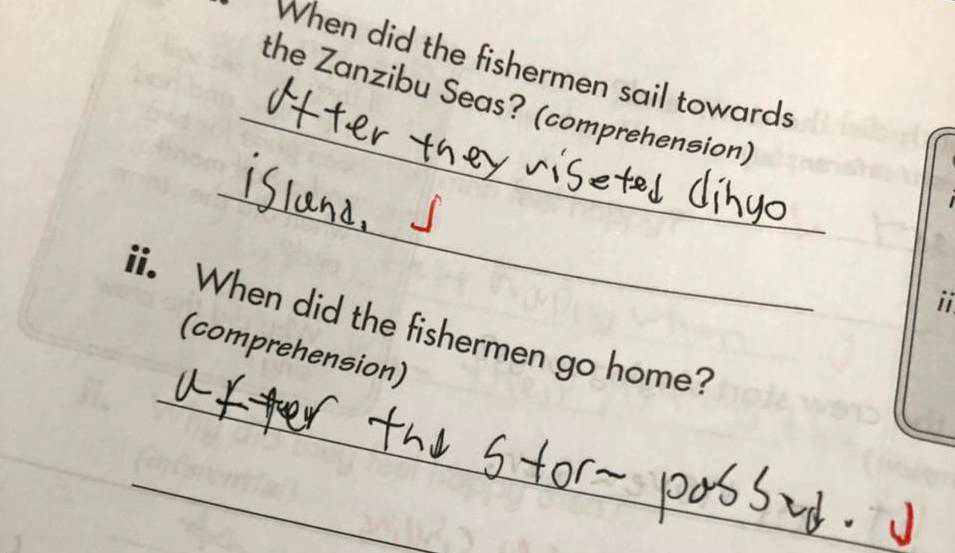 When did the fishermen sail towards
the Zanzibu Seas? (comprehension)
after they viseted dihyo
island.
ii. When did the fishermen go home?
(comprehension)
after the storm passed.
ii.